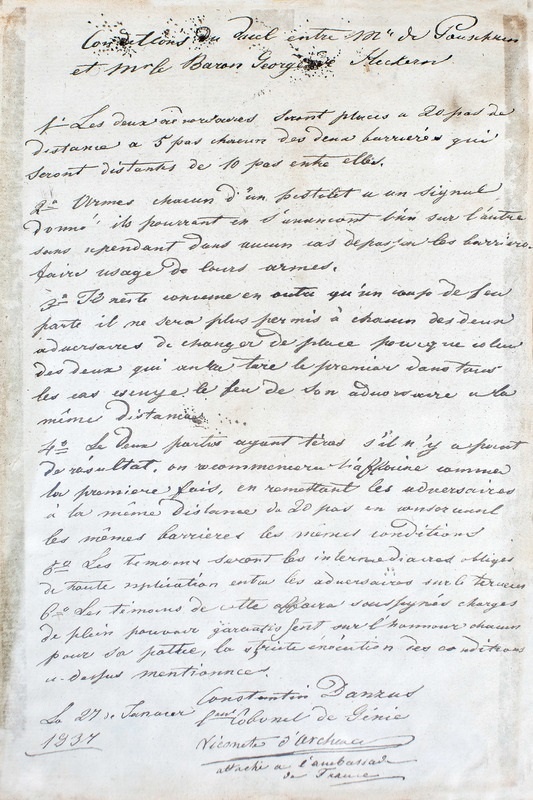 Conditions du duel entre Mr de Pouschkin
et Mr le Baron Georges de Heckern
1º Les deux adversaires seront placés a 20 pas de
distance a 5 pas chacun des deux barrières qui
seront distantes de 10 pas entre elles.
2º Armés chacun d'un pistolet a un signal
donné ils pourront en s'avançant l'un sur l'autre
sans cependant dans aucun cas dépasser les barrières
faire usage de leurs armes.
3º Il reste convenu en outre qu'un coup de feu
parti il ne sera plus permis à chacun des deux
adversaires de changer de place pour que celui
des deux qui aura tiré le premier dans tous
les cas essuye le feu de son adversaire a la
même distance
4º Les deux partis ayant tirés s'il n'y a point
de résultat, on recommencera l'affaire comme
la premiere fois, en remettant les adversaires
à la même distance de 20 pas en conservant
les mêmes barrières les mêmes conditions
5º Les temoins seront les intermediaires obligés
de toute explication entre les adversaires sur le terrein
6º Les témoins de cette affaire soussignés chargés
de plein pouvoir garantissent sur l'honneur chacun
pour sa partie, la stricte exécution des conditions
ci-dessus mentionnées.
Constantin Danzas
Le 27 de Janvier
Colonel de Génie
1937
Vicomte d'Archiac
attaché a l'ambassade
de France